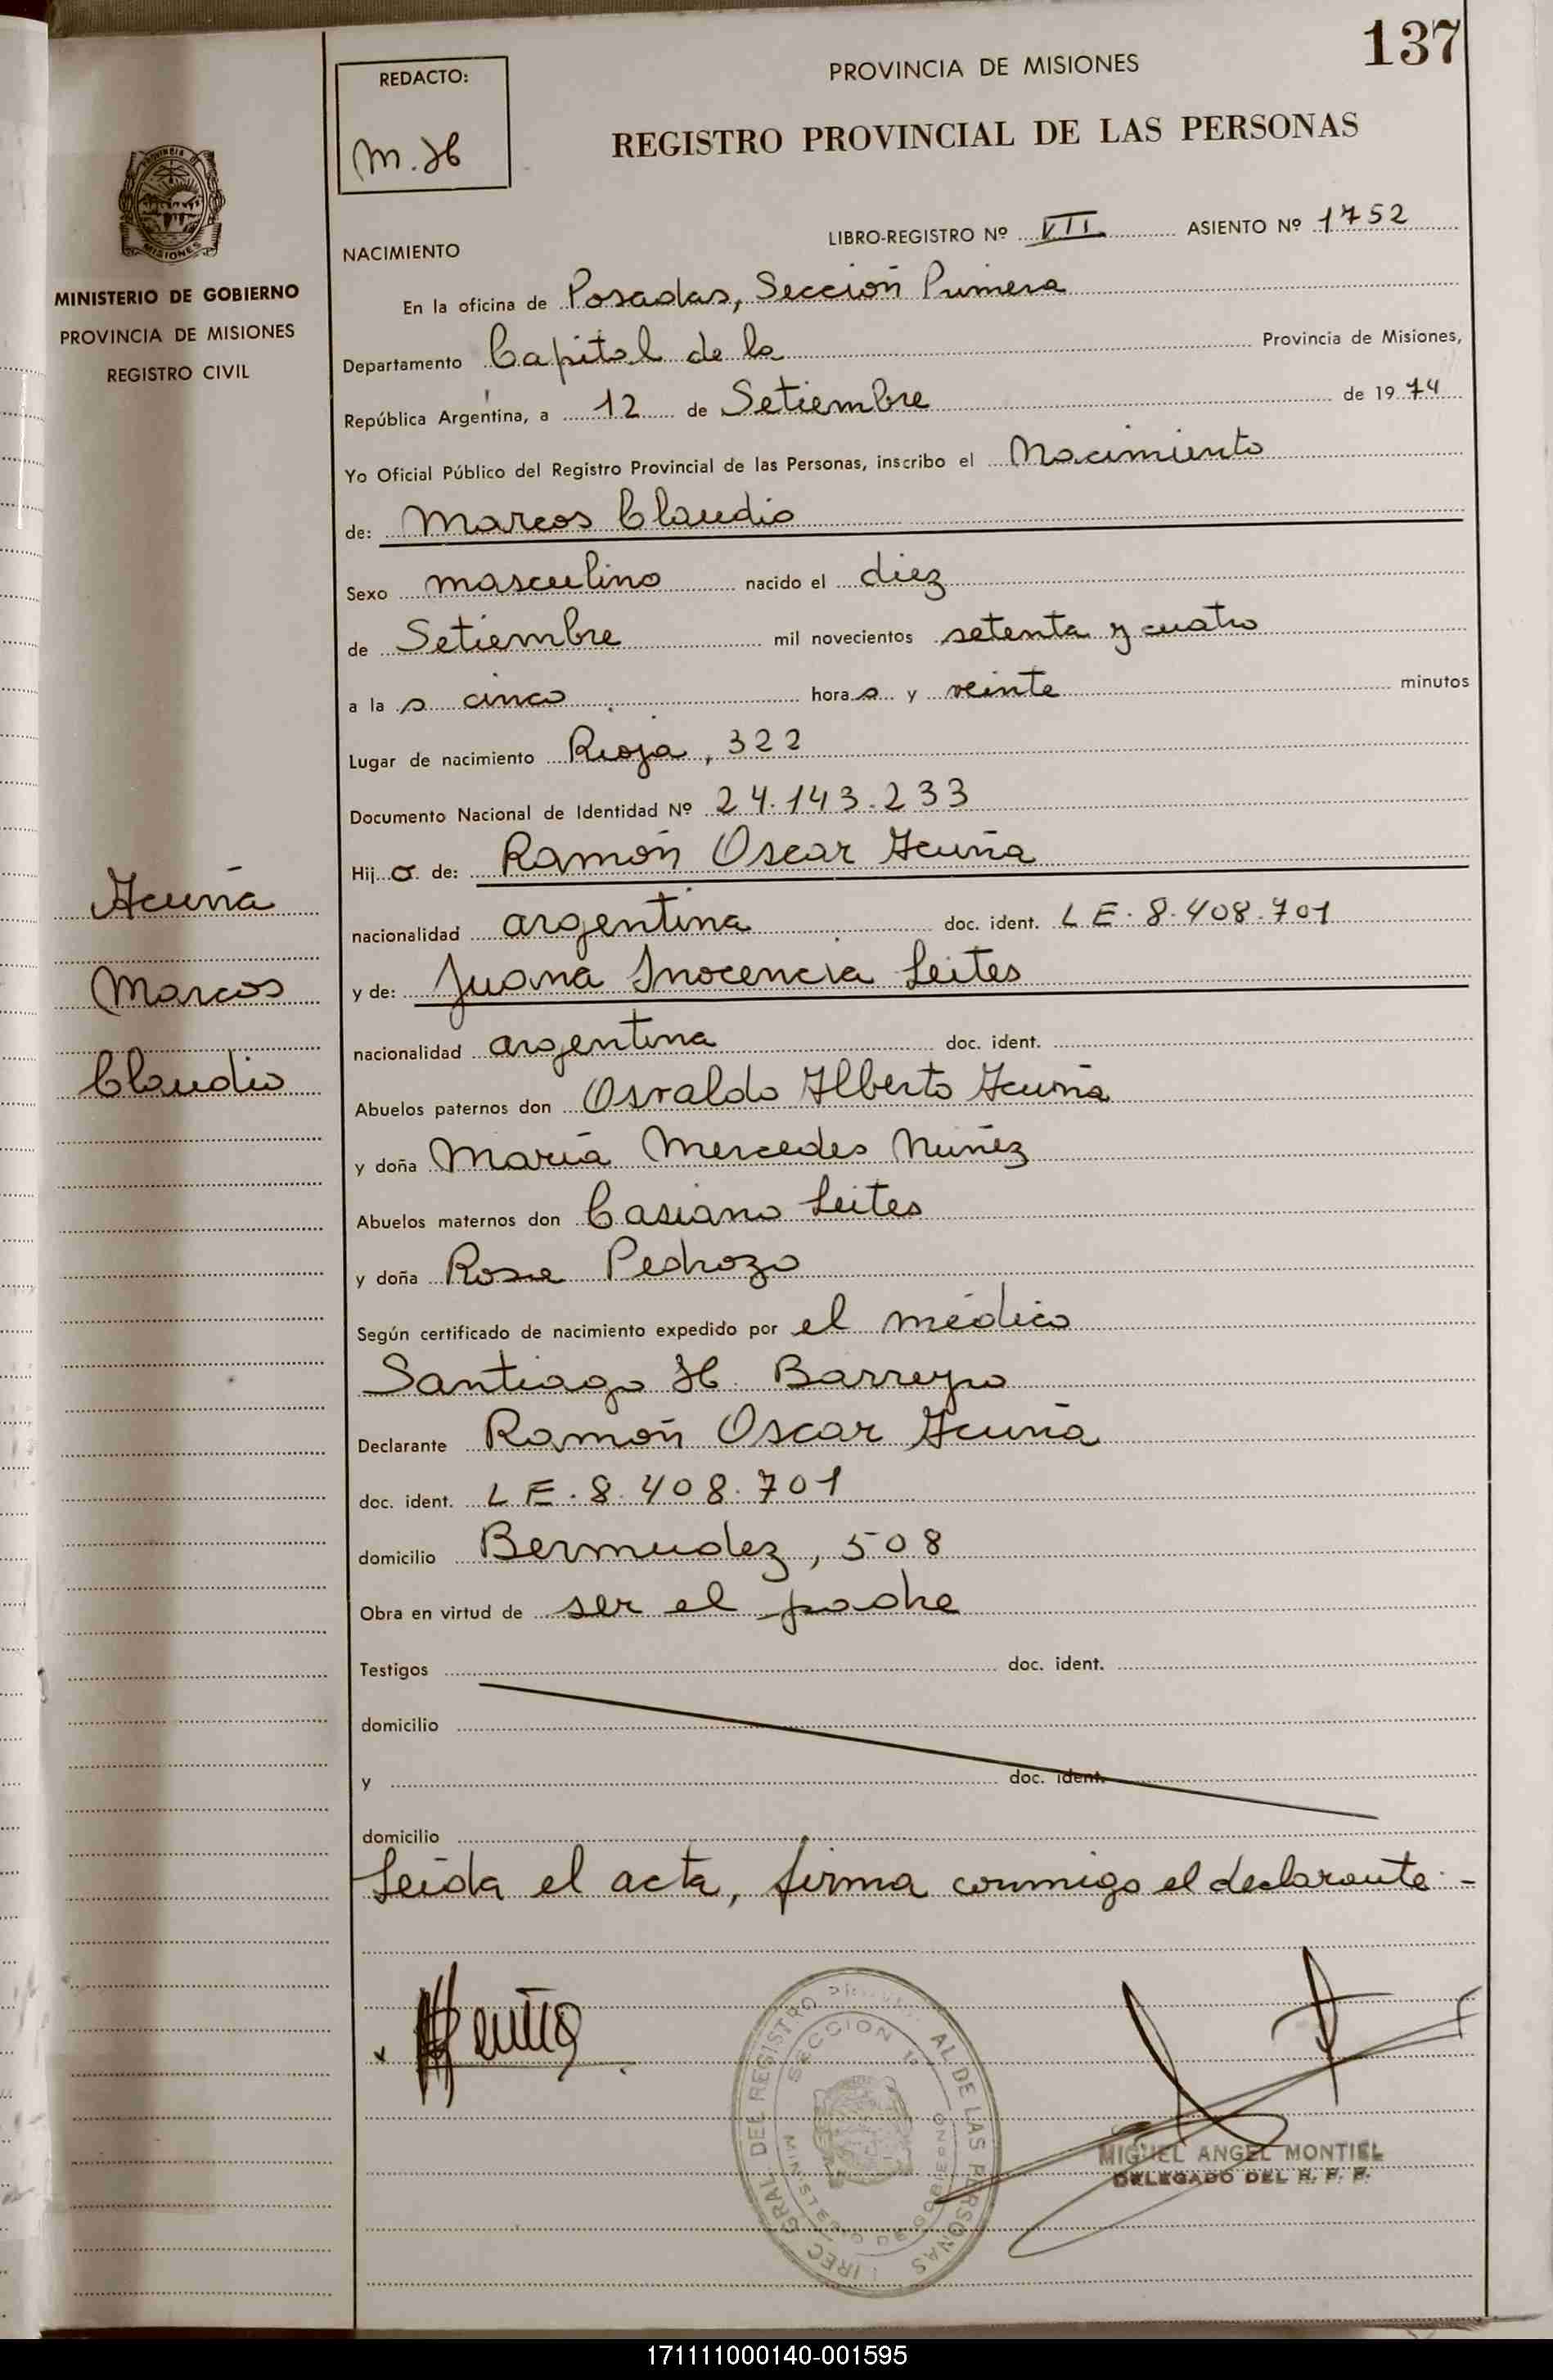 137
REDACTO:
M. H
PROVINCIA DE MISIONES
REGISTRO PROVINCIAL DE LAS PERSONAS
PROVINCIA DE
MISIONES
MINISTERIO DE GOBIERNO
PROVINCIA DE MISIONES
REGISTRO CIVIL
NACIMIENTO
LIBRO-REGISTRO Nº VII ASIENTO Nº 1752
En la oficina de Posadas, Sección Primera
Departamento Capital de la Provincia de Misiones,
República Argentina, a 12 de Setiembre de 1974
Yo Oficial Público del Registro Provincial de las Personas, inscribo el Nacimiento
de: Marcos Claudio
Sexo masculino nacido el diez
de Setiembre mil novecientos setenta y cuatro
a la s cinco hora s y veinte minutos
Lugar de nacimiento Rioja, 322
Documento Nacional de Identidad Nº 24.143.233
Hij o de: Ramón Oscar Acuña
nacionalidad argentina doc. ident. L E. 8.408.701
y de: Juana Inocencia Leites
nacionalidad argentina doc. ident.
Abuelos paternos don Osvaldo Alberto Acuña
y doña María Mercedes Nuñez
Abuelos maternos don Casiano Leites
y doña Rosa Pedrozo
Según certificado de nacimiento expedido por el médico
Santiago H. Barreyro
Declarante Ramón Oscar Acuña
doc. ident. L E. 8.408.701
domicilio Bermudez, 508
Obra en virtud de ser el padre
Testigos doc. ident.
domicilio
y doc. ident.
domicilio
Leída el acta, firma conmigo el declarante.-
Acuña
Marcos
Claudio
x Acuña
GRAL DEL REGISTRO AL DE LAS PERSONAS
SECCION 1ª
MINISTERIO DE GOBIERNO
MIGUEL ANGEL MONTIEL
DELEGADO DEL R. P. P.
171111000140-001595